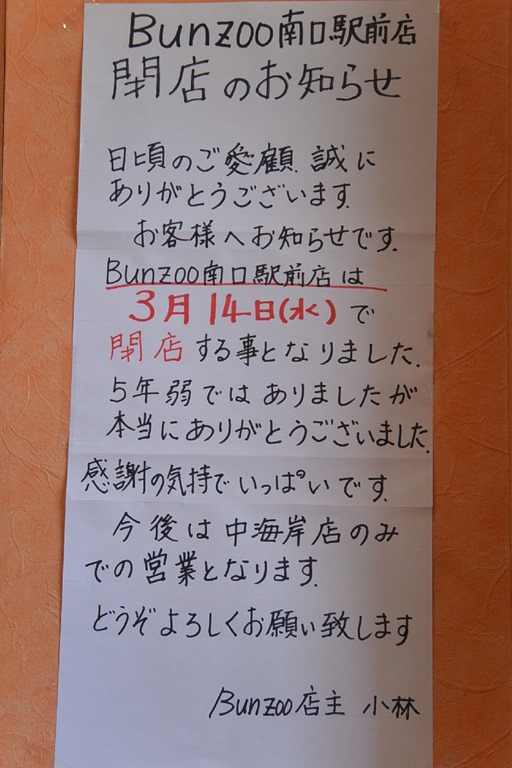 Bunzoo南口駅前店
閉店のお知らせ
日頃のご愛顧 誠に
ありがとうございます.
お客様へお知らせです.
Bunzoo南口駅前店は
3月14日(水)で
閉店する事となりました.
5年弱ではありましたが
本当にありがとうございました.
感謝の気持でいっぱいです.
今後は中海岸店のみ
での営業となります.
どうぞよろしくお願い致します
Bunzoo店主 小林